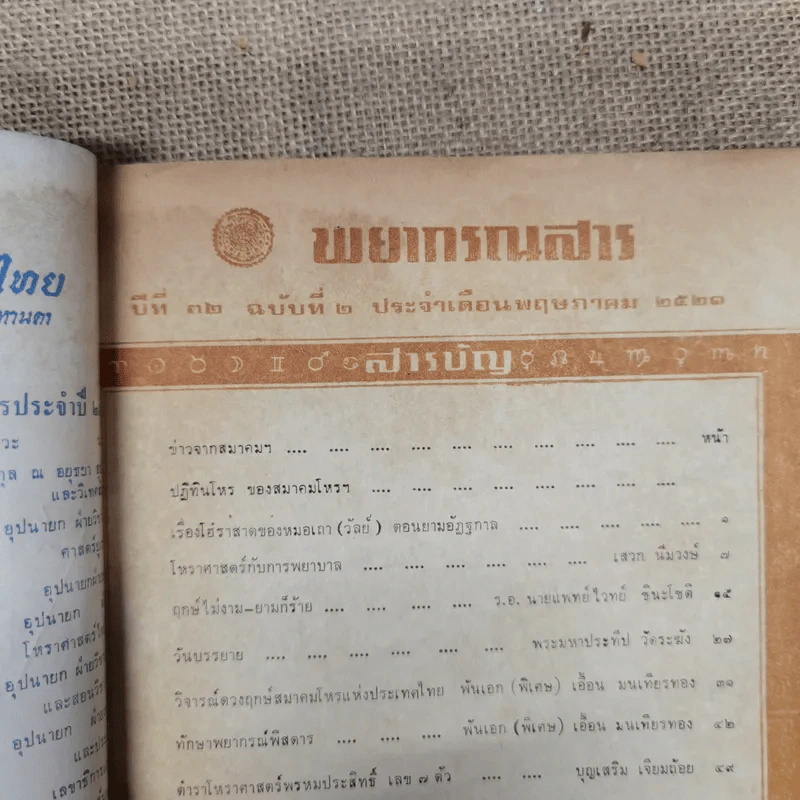 ไทย
พยากรณสาร
ปีที่ ๓๒ ฉบับที่ ๒ ประจำเดือนพฤษภาคม ๒๕๒๑
สารบัญ
รประจำปี
วะ
กุล ณ อยุธยา
และวิเทศ
อุปนายก ฝ่ายวิช
ศาสตร์
อุปนายกฝ่าย
อุปนายก
โหราศาสตร์
อุปนายก ฝ่ายวิช
และสอนวิช
อุปนายก ฝ่าย
เลขาธิการ
ข่าวจากสมาคมฯ .... .... .... .... .... .... .... .... .... หน้า
ปฏิทินโหร ของสมาคมโหรฯ .... .... .... .... .... .... ....
เรื่องโฮ๋ราสาดของหมอเถา (วัลย์) ตอนยามอัฏฐกาล .... .... .... .... .... ๑
โหราศาสตร์กับการพยาบาล .... .... .... .... .... .... เสวก นิ่มวงษ์ ๗
ฤกษ์ไม่งาม-ยามก็ร้าย .... .... .... .... ร.อ. นายแพทย์ไวทย์ ชินะโชติ ๑๕
วันบรรยาย .... .... .... .... .... .... .... พระมหาประทีป วัดระฆัง ๒๗
วิจารณ์ดวงฤกษ์สมาคมโหรแห่งประเทศไทย พันเอก (พิเศษ) เอื้อน มนเทียรทอง ๓๑
ทักษาพยากรณ์พิสดาร .... .... .... พันเอก (พิเศษ) เอื้อน มนเทียรทอง ๔๒
ตำราโหราศาสตร์พรหมประสิทธิ์ เลข ๗ ตัว .... .... บุญเสริม เจิยมถ้อย ๔๙